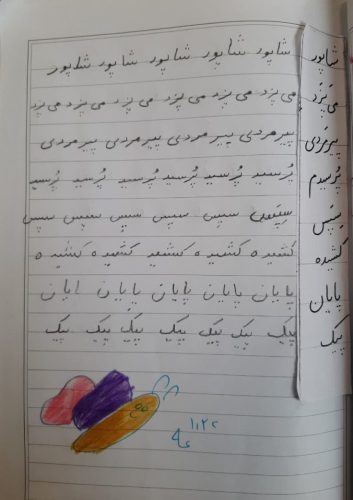 شاپور شاپور شاپور شاپور شاپور شاپور
می پَزد می پزد می پزد می پزد می پزد می پزد
پیرمَردی پیرمردی پیرمردی پیرمردی پیرمردی
پُرسیدم پُرسید پُرسید پُرسید پُرسید پُرسید
سِپَس سِپَس سپس سپس سپس سپس
کشیده کشیده کشیده کشیده کشیده کشیده
پایان پایان پایان پایان پایان
پیک پیک پیک پیک پیک پیک پیک پیک